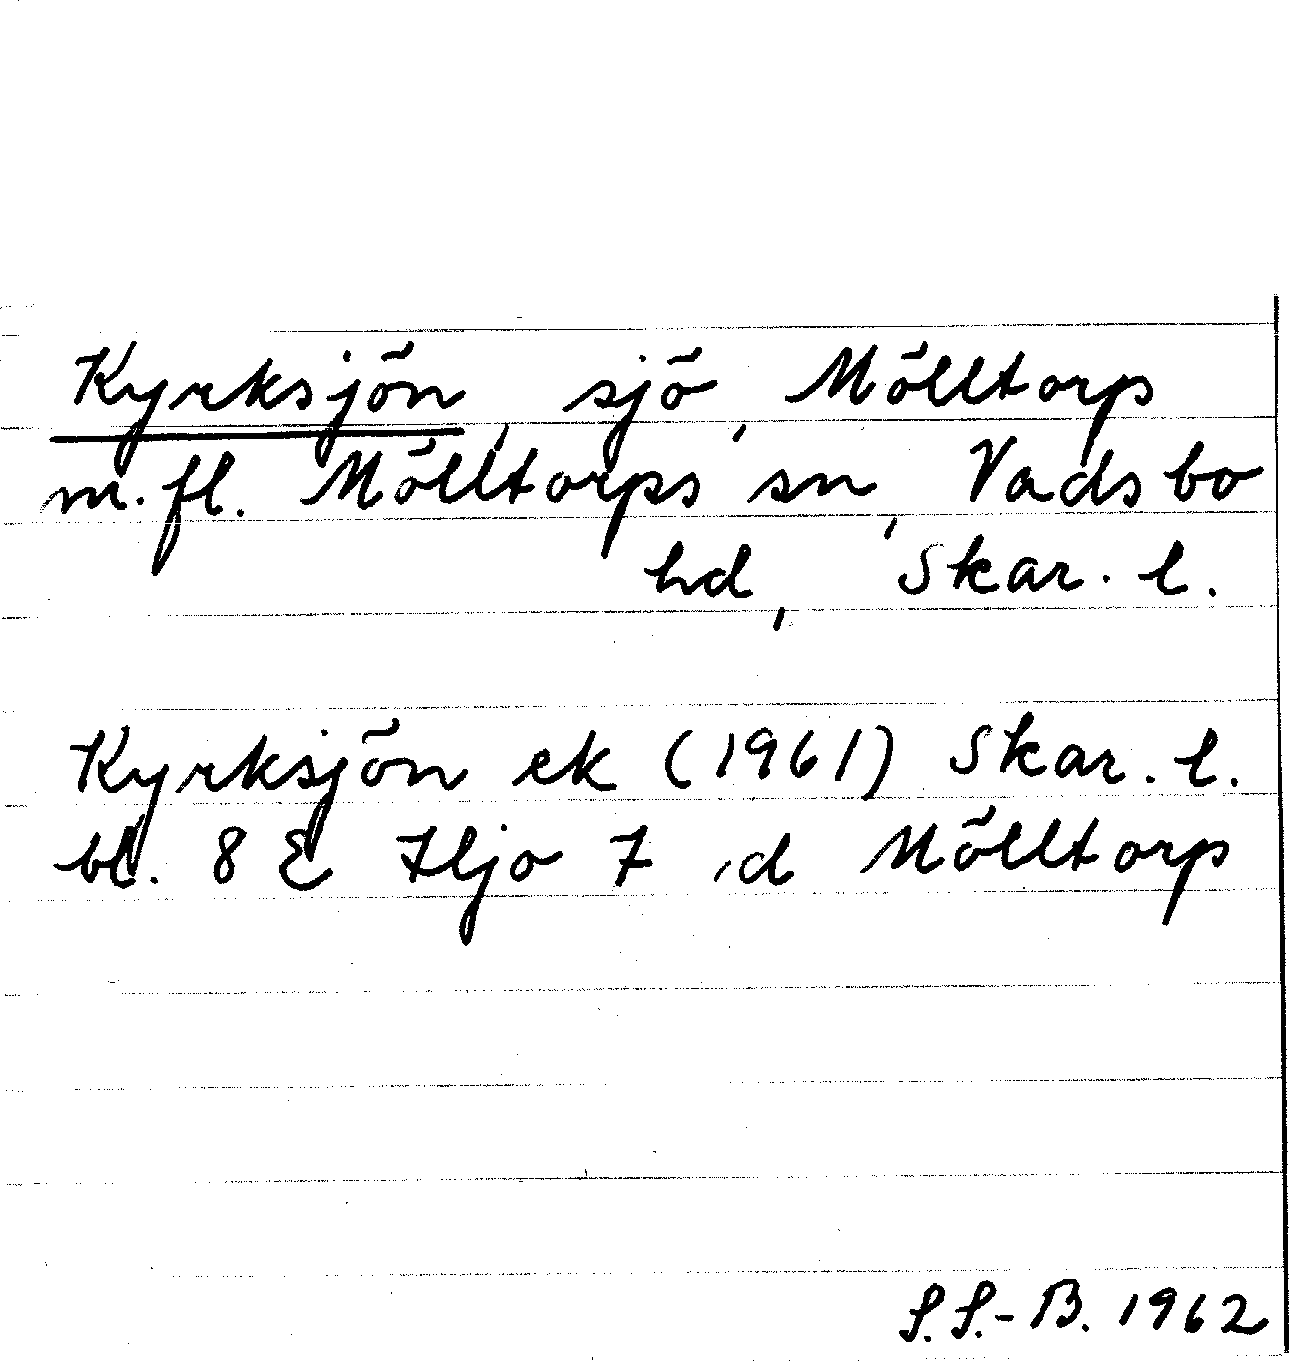 Kyrksjön, sjö, Mölltorp
m.fl. Mölltorps sn, Vadsbo
hd, Skar. l.
Kyrksjön ek (1961) Skar. l.
bl. 8 E Hjo 7 d Mölltorp
S.S.-B. 1962